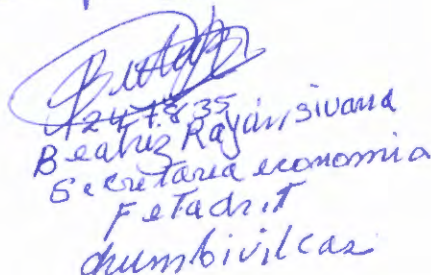 Beatriz Rayan, sivana
Secretaria economia
Fetadit
chumbivilcas